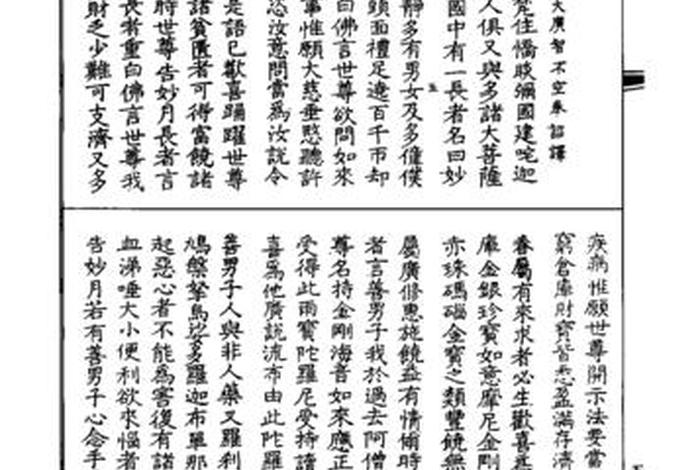 大廣智不空奉 詔譯
梵住憍睒彌國建咤迦
人俱又與多諸大菩薩
國中有一長者名曰妙
靜多有男女及多僮僕
頭面禮足遶百千帀却
白佛言世尊欲問如來
事惟願大慈垂愍聽許
恣汝意問當爲汝說令
是語已歡喜踊躍世尊
諸貧匱者可得富饒諸
時世尊告妙月長者言
長者重白佛言世尊我
財乏少難可支濟又多
疾病惟願世尊開示法要當
窮倉庫財寶皆悉盈滿存濟
眷屬有來求者必生歡喜
庫金銀珍寶如意摩尼金剛
赤珠碼碯金寶之類豐饒無
屬廣修惠施饒益有情爾時
者言善男子我於過去阿僧
尊名持金剛海音如來應正
受得此雨寶陀羅尼受持讀
喜爲他廣說流布由此陀羅
善男子人與非人藥叉羅刹
鳩槃拏烏娑多羅迦布單那
起惡心者不能爲害復有諸
血涕唾大小便利欲來惱者
告妙月若有善男子心念手